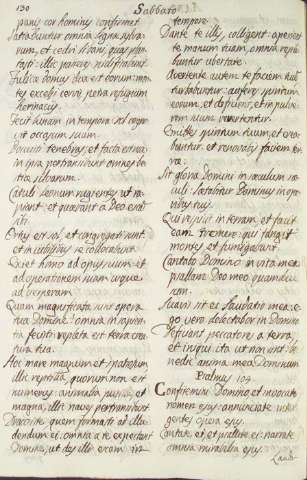 130
Sabbato
panis cor hominis confirmet
Saturabuntur omnia ligna sylva-
rum, et cedri libani, quas plan-
tasti: illic passeres nidificabunt
Fulicæ domus dux est eorum: mon-
tes excelsi cervis petra refugium
herinaciis
Fecit lunam in tempora sol cogno-
vit occasum suum.
Posuisti tenebras, et facta est nox
in ipsa pertransibunt omnes bes-
tiæ silvarum.
Catuli leonum rugientes ut ra-
piant: et quærant a Deo escā
sibi
Ortus est sol et congregati sunt
et in cubilibus se collocabunt
Exiet homo ad opus suum: et
ad operationem suam usque
ad vesperum
Quam magnificata sunt opera
tua Domine: omnia in sapien-
tia fecisti repleta est terra crea-
tura tua.
Hoc mare magnum et spatiosum
illic reptilia, quorum non est
numerus: animalia pusilla, et
magna, illic naves pertransibunt
Draco iste, quem formasti ad illu-
dendum ei: omnia a te expectant
Domine, ut des illis escam in
tempore.
Dante te illis, colligent: aperien-
te manum tuam, omnia reple-
buntur ubertate.
Avertente autem te faciem tur-
babuntur: auferes spiritum
eorum, et deficient, et in pulve-
rem suum revertentur.
Emittes spiritum tuum, et crea-
buntur: et renovabis faciem ter-
ræ:
Sit gloria Domini in sæculum sæ-
culi: lætabitur Dominus in ope-
ribus suis
Qui respicit in terram, et facit
eam tremere: qui tangit
montes et fumigabunt.
Cantabo Domino in vita mea
psallam Deo meo quamdiu
sum.
Suave sit ei laudatio mea: e-
go vero delectabor in Domino
Deficiant peccatores a terra,
et iniqui ita ut non sint: be-
nedic anima mea Dominum
Psalmus 104.
Confitemini Domino et invocate
nomen ejus: annunciate inter
gentes opera ejus.
Cantate ei, et psallite ei: narrate
omnia mirabilia ejus.
Laud-